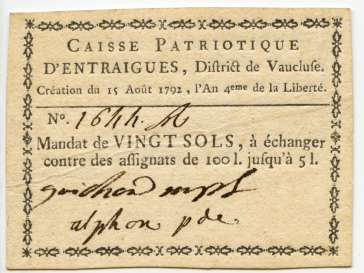 CAISSE PATRIOTIQUE
D'ENTRAIGUES, District de Vaucluse.
Création du 15 Août 1792, l'An 4eme de la Liberté.
No. 1644. A
Mandat de VINGT SOLS, à échanger
contre des assignats de 100 l. jusqu'à 5 l.
alphon pde